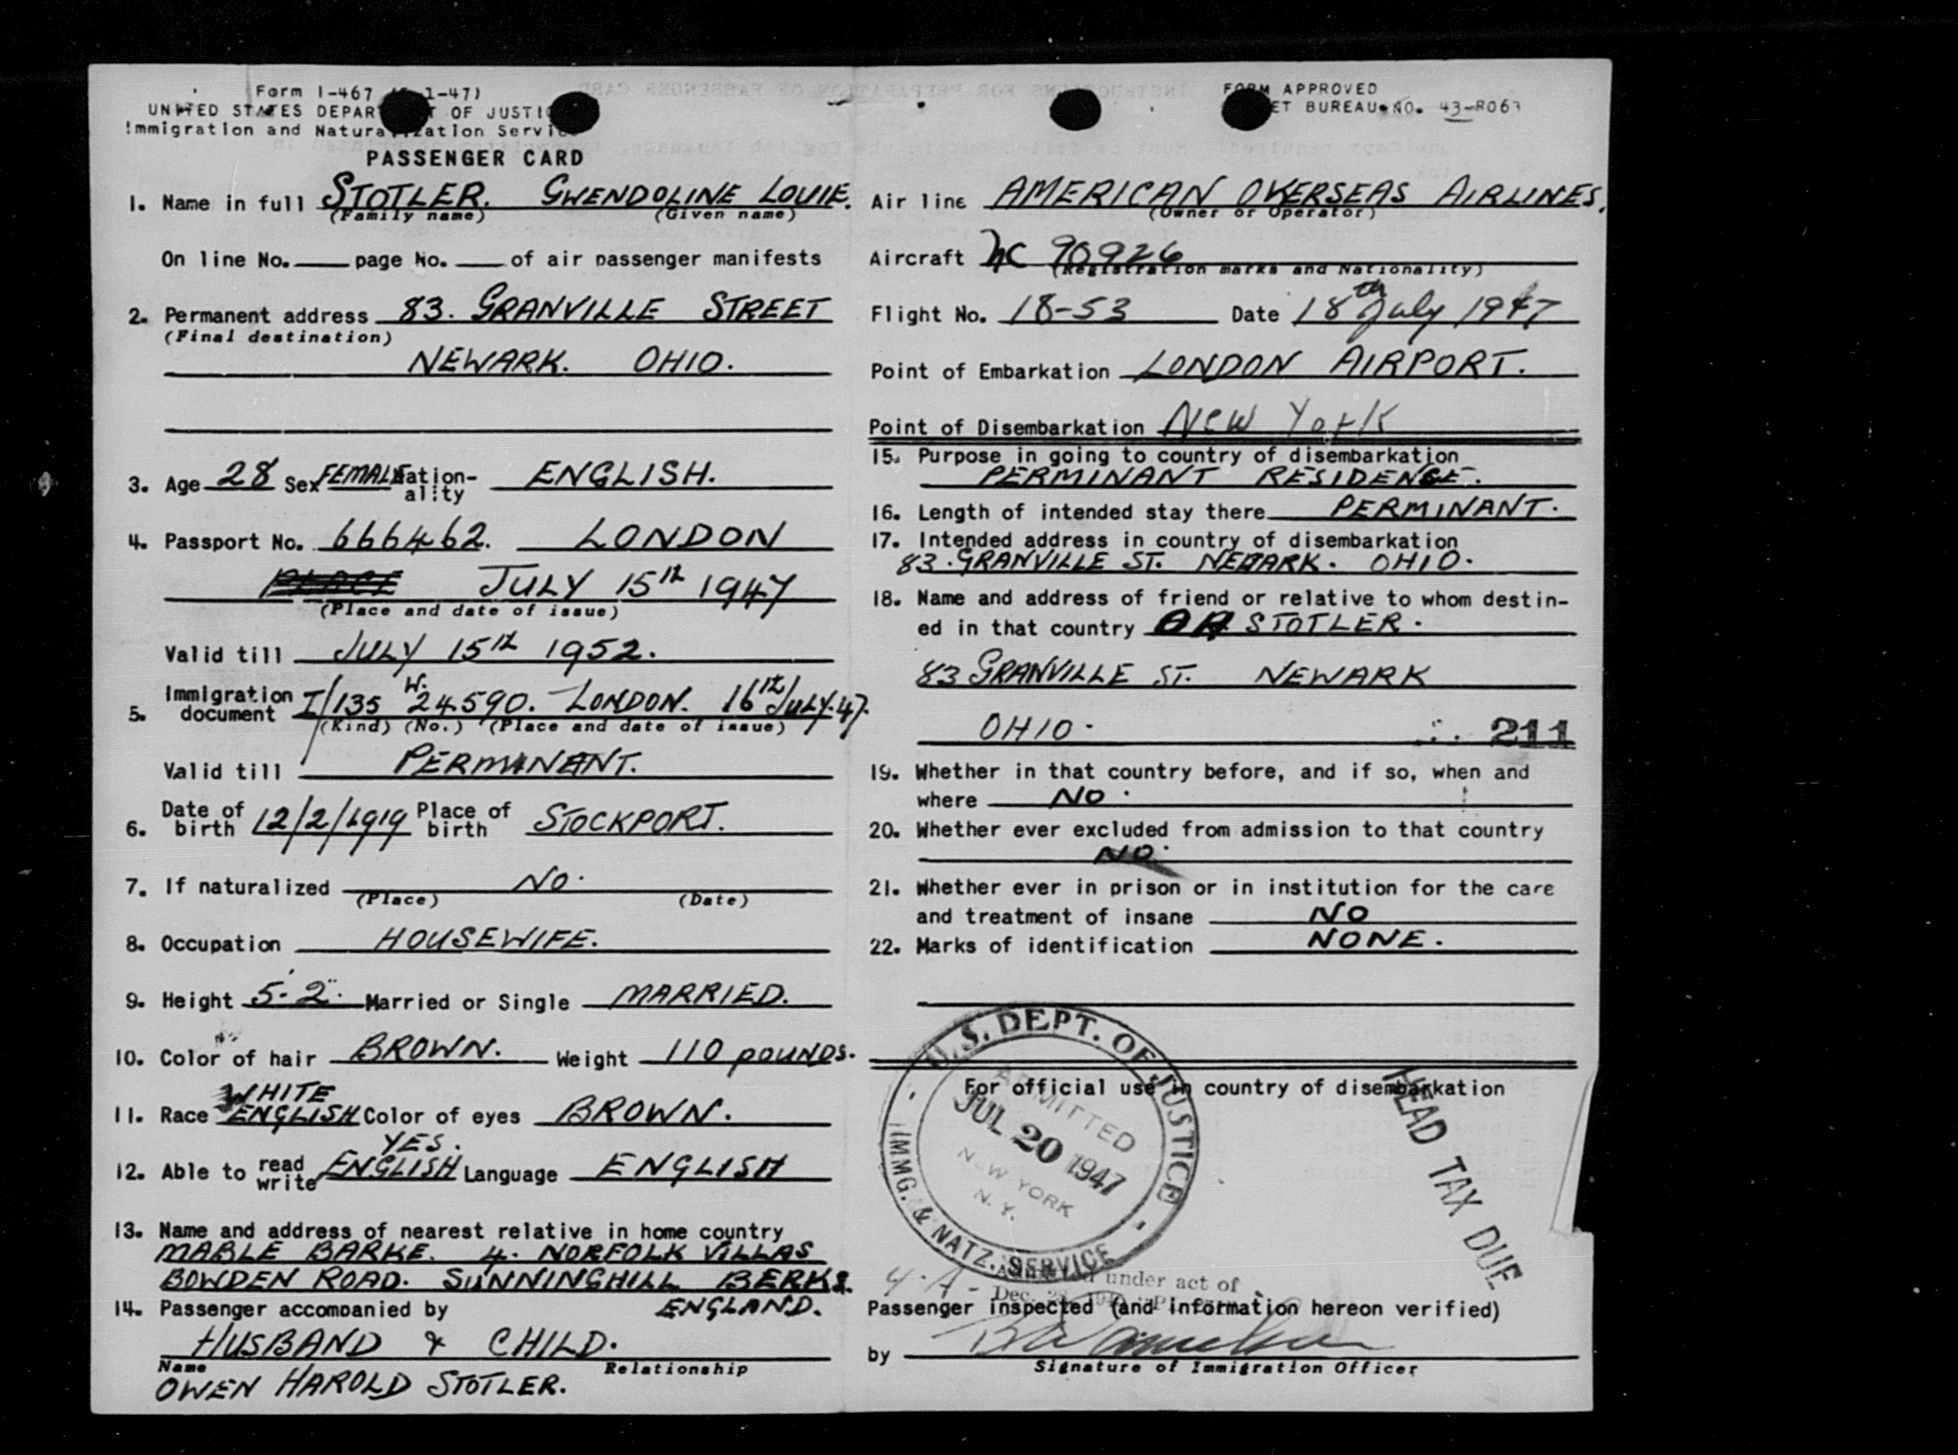 Form I-467 1-47)
UNITED STATES DEPAR T OF JUSTIC
Immigration and Naturalization Service
PASSENGER CARD
1. Name in full STOTLER. GWENDOLINE LOUIE.
(Family name) (Given name)
On line No. ___ page No. ___ of air passenger manifests
2. Permanent address 83. GRANVILLE STREET
(Final destination)
NEWARK. OHIO.
3. Age 28 Sex FEMALE Nation-
ality ENGLISH.
4. Passport No. 666462. LONDON
PLACE JULY 15th 1947
(Place and date of issue)
Valid till JULY 15th 1952.
5. Immigration document I/135 W. 24590. LONDON. 16th JULY. 47.
(Kind) (No.) (Place and date of issue)
Valid till PERMINANT.
6. Date of birth 12/2/1919 Place of birth STOCKPORT.
7. If naturalized NO.
(Place) (Date)
8. Occupation HOUSEWIFE.
9. Height 5'-2". Married or Single MARRIED.
10. Color of hair BROWN. Weight 110 POUNDS.
WHITE
11. Race ENGLISH Color of eyes BROWN.
YES.
12. Able to read write ENGLISH Language ENGLISH
13. Name and address of nearest relative in home country
MABLE BARKE. 4. NORFOLK VILLAS
BOWDEN ROAD. SUNNINGHILL BERKS.
14. Passenger accompanied by ENGLAND.
HUSBAND & CHILD.
Name Relationship
OWEN HAROLD STOTLER.
FORM APPROVED
ET BUREAU NO. 43-R063
Air line AMERICAN OVERSEAS AIRLINES.
(Owner or Operator)
Aircraft NC 90926
(Registration marks and Nationality)
Flight No. 18-53 Date 18th July 1947
Point of Embarkation LONDON AIRPORT.
Point of Disembarkation New York
15. Purpose in going to country of disembarkation
PERMINANT RESIDENCE.
16. Length of intended stay there PERMINANT.
17. Intended address in country of disembarkation
83. GRANVILLE ST. NEWARK. OHIO.
18. Name and address of friend or relative to whom destin-
ed in that country STOTLER.
83 GRANVILLE ST. NEWARK
OHIO. 211
19. Whether in that country before, and if so, when and
where NO.
20. Whether ever excluded from admission to that country
NO.
21. Whether ever in prison or in institution for the care
and treatment of insane NO
22. Marks of identification NONE.
For official use in country of disembarkation
U.S. DEPT. OF JUSTICE
IMMG. & NATZ. SERVICE
ADMITTED
JUL 20 1947
NEW YORK
N. Y.
HEAD TAX DUE
4-A-
under act of
Dec.
Passenger inspected (and information hereon verified)
by
Signature of Immigration Officer